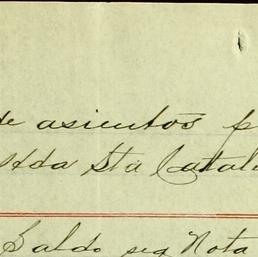 de asientos p
Hda Sta Catal
Saldo seg Nota